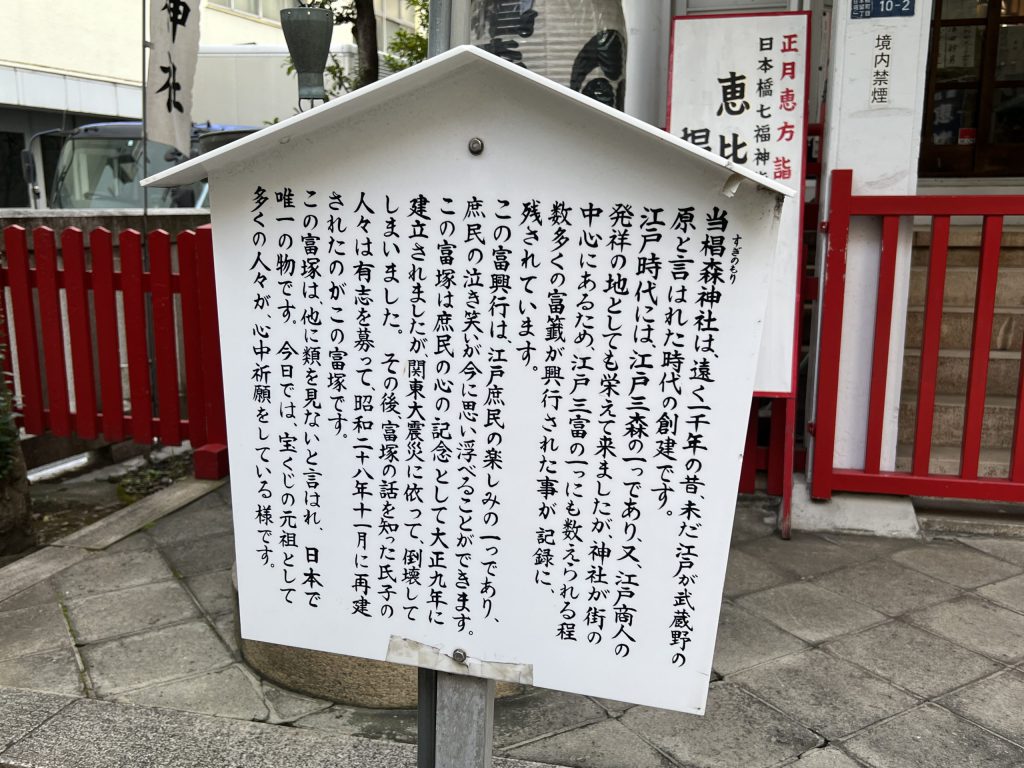 10-2
境内禁煙
正月恵方詣
日本橋七福神
恵比
神社
すぎのもり
当椙森神社は、遠く一千年の昔、未だ江戸が武蔵野の
原と言はれた時代の創建です。
江戸時代には、江戸三森の一つであり、又、江戸商人の
発祥の地としても栄えて来ましたが、神社が街の
中心にあるため、江戸三富の一つにも数えられる程
数多くの富籤が興行された事が 記録に、
残されています。
この富興行は、江戸庶民の楽しみの一つであり、
庶民の泣き笑いが今に思い浮べることができます。
この富塚は庶民の心の記念として大正九年に
建立されましたが、関東大震災に依って、倒壊して
しまいました。その後、富塚の話を知った氏子の
人々は有志を募って、昭和二十八年十一月に再建
されたのがこの富塚です。
この富塚は、他に類を見ないと言はれ、日本で
唯一の物です。今日では、宝くじの元祖として
多くの人々が、心中祈願をしている様です。